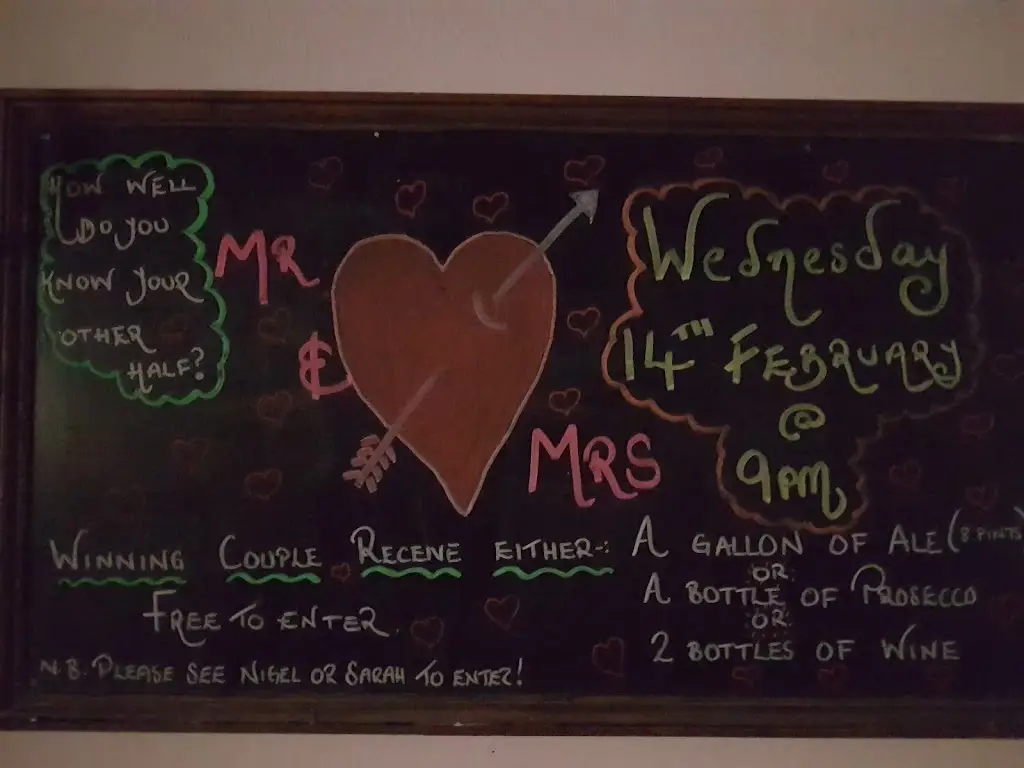 HOW WELL
DO YOU
KNOW YOUR
OTHER
HALF?
MR
&
MRS
WEDNESDAY
14TH FEBRUARY
@
9PM
WINNING COUPLE RECEIVE EITHER-:
A GALLON OF ALE (8 PINTS)
OR
A BOTTLE OF PROSECCO
OR
2 BOTTLES OF WINE
FREE TO ENTER.
N.B. PLEASE SEE NIGEL OR SARAH TO ENTER!